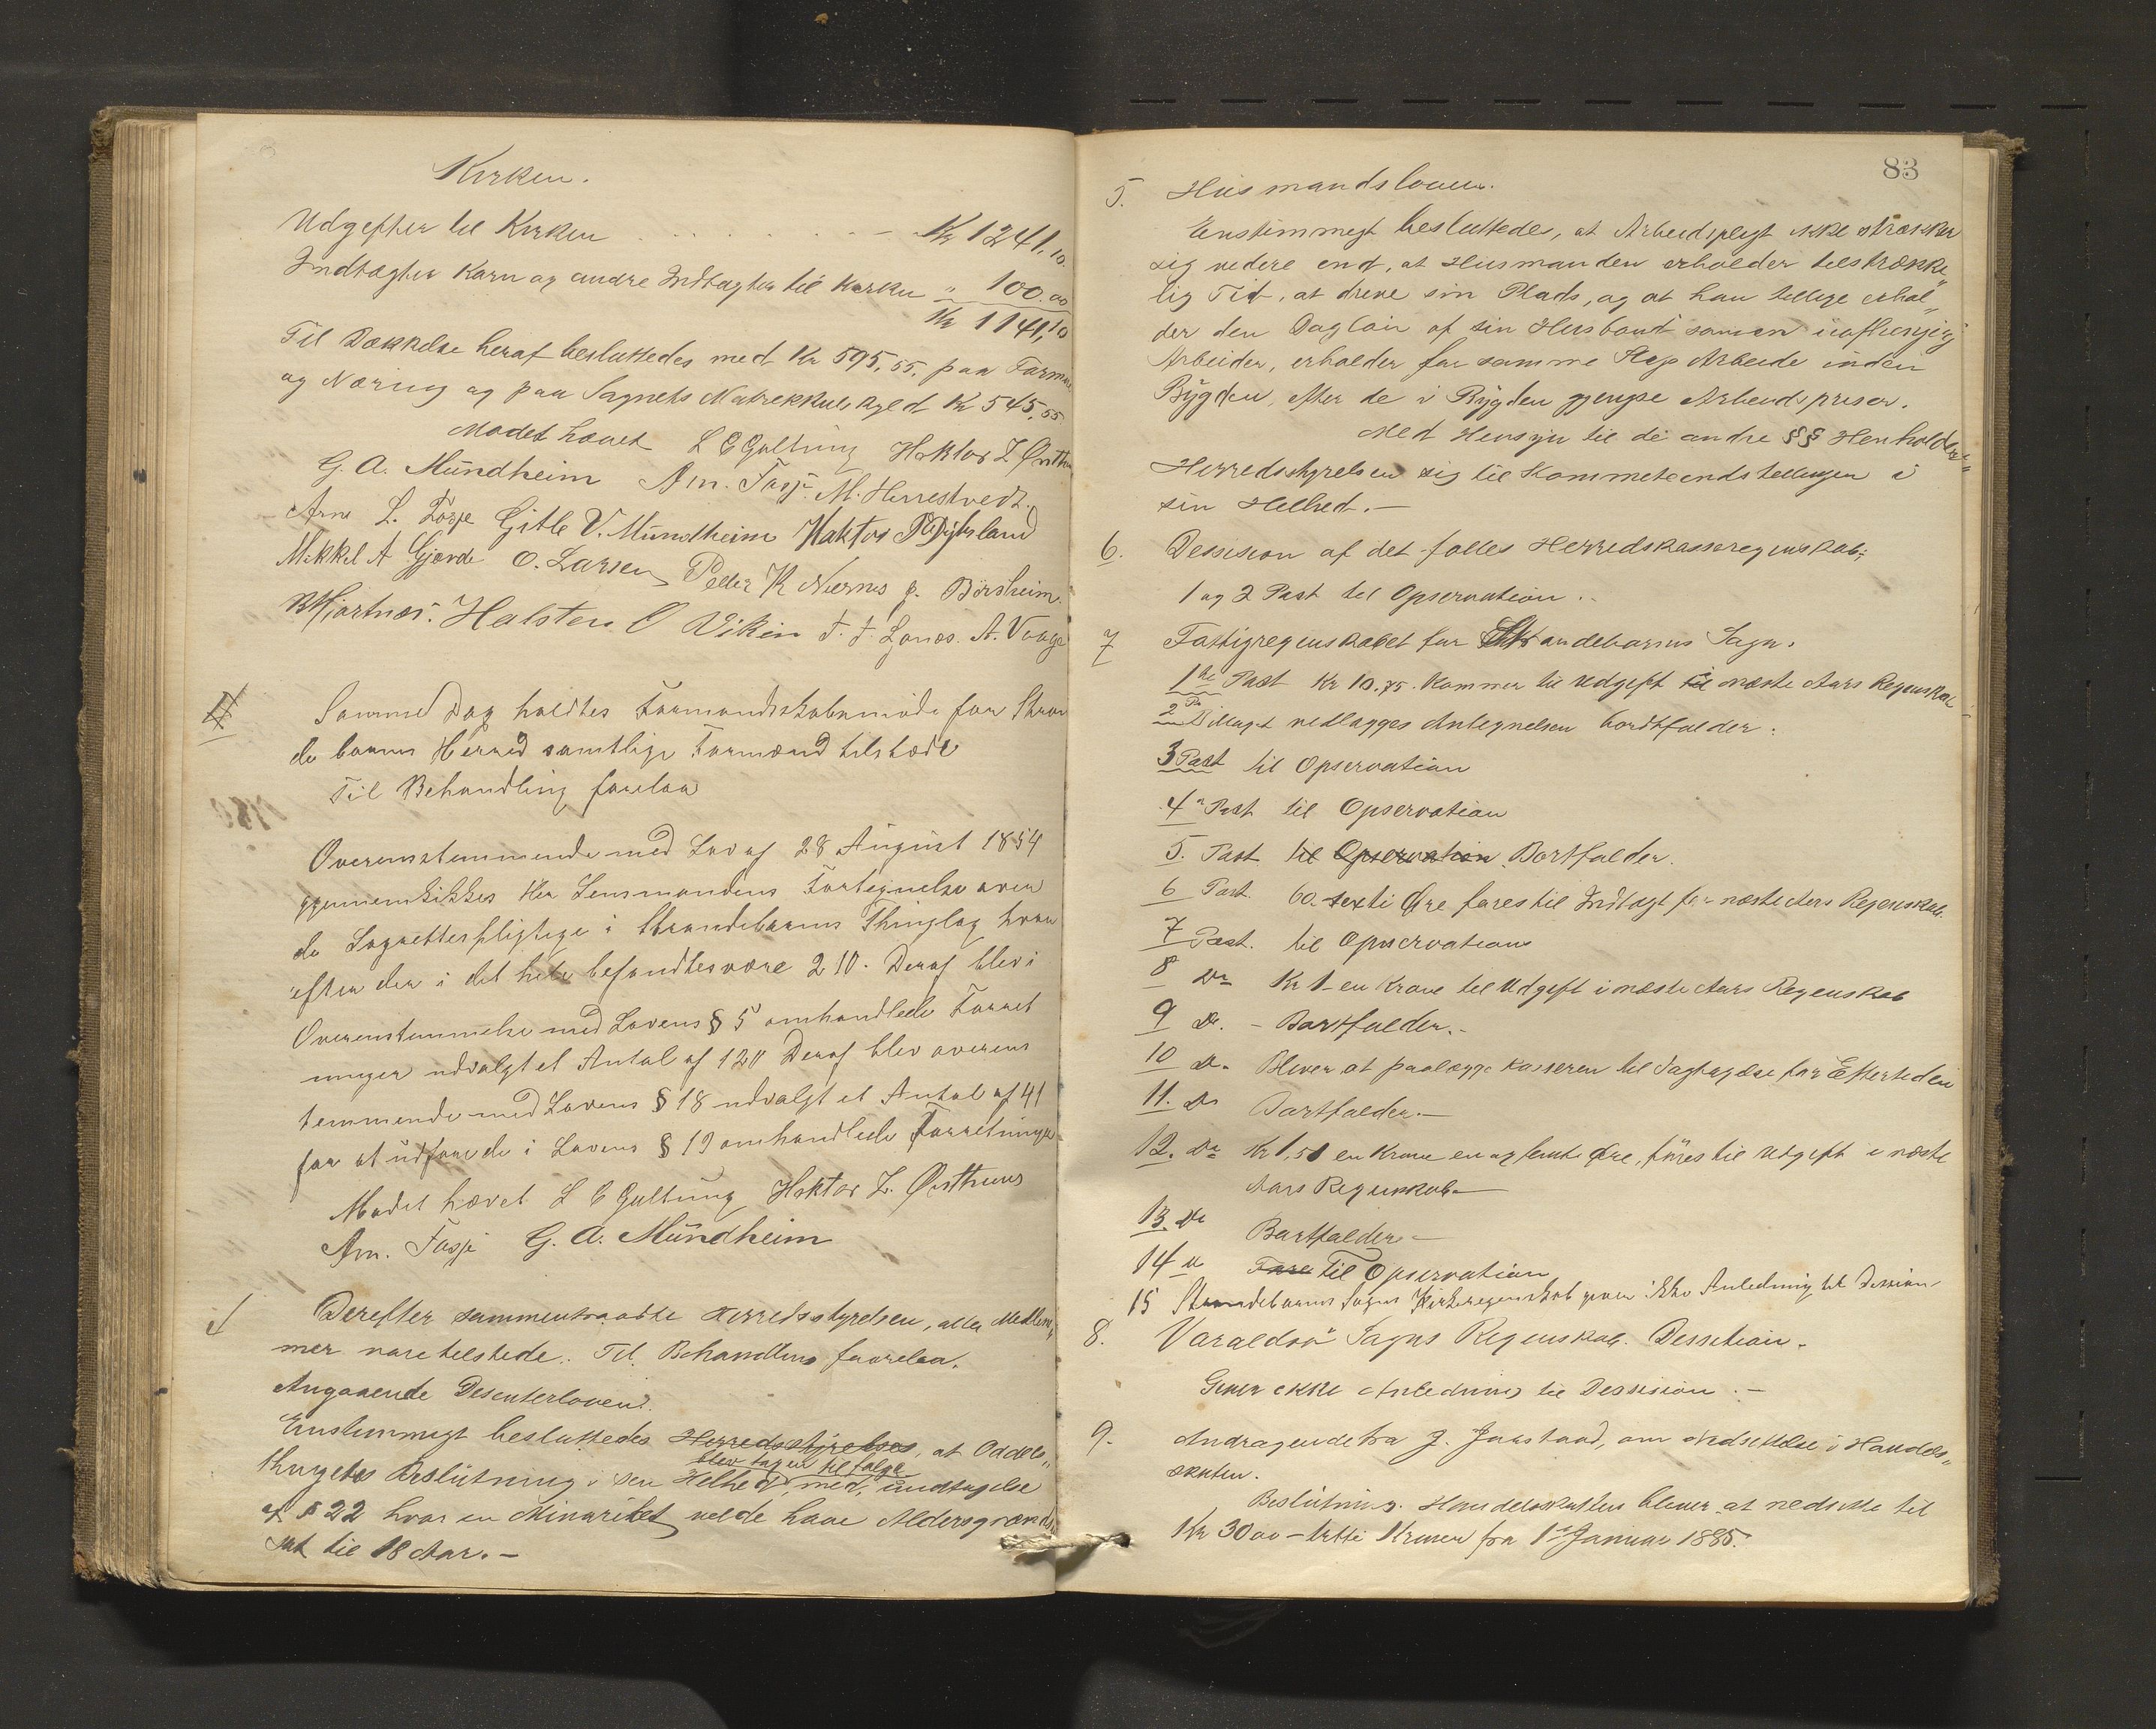 Kirken.
Udgifter til Kirken . . . . . . . Kr 1241,10.
Indtægter Korn og andre Indtægter til Kirken " 100.00
Kr 1141,10
Til Dækkelse heraf besluttedes med Kr 595,55. paa Formue
og Næring og paa Sognets Matrikkulskyld Kr 545,55
Mødet hævet L E Galtung Haktor Z Østhus
G. A. Mundheim Am. Tosje M. Herrestvedt.
Arne L. Tosje Gitle V. Mundheim Haktor P Dysland
Mikkel A Gjerde O. Larsen Peder K Nernes J. Børsheim
Hjartnes. Halsten O Viken T. T. Lones. A. Vaage
Samme Dag holdtes Formandskabsmøde for Stran
debarms Herred samtlige Formænd tilstæde
Til Behandling forelaa
Overensstemmende med Lov af 28 August 1854
gjennemkikkes Her Lensmandens Fortegnelse over
de Lagrettespligtige i Strandebarms Thinglag hvor
efter der i det hele befandtes være 210. Deraf blev i
Overenstemmelse med Lovens § 5 omhandlede Forret
ninger udvalgt et Antal af 120 Deraf blev overens
temmende med Lovens § 18 udvalgt et Antal af 41
for at udføre de i Lovens § 19 omhandlede Forretninger
Mødet hævet L E Galtung Haktor Z. Østhuus
Am. Tosje G. A. Mundheim
Derefter sammentraadte Herredsstyrelsen, alle Medlem„
mer vare tilstede. Til Behandling forelaa.
Angaaende Desenterloven.
Enstemmigt besluttedes Herredsstyrelses, at Oddels„
blev tagen tilfølge
thingets Beslutning i sin Helhed, med, undtagelse
af § 22 hvor en Minoritet vilde have Aldersgrænds
sat til 18 Aar. –
83
5. Husmandsloven.
Enstimmigt besluttedes, at Arbeidspligt ikke strækker
sig videre end, at Husmanden erholder tilstrække„
lig Tid, at drive sin Plads, og at han tillige erhol„
der den Dagløn af sin Husbond som en uafhengig
Arbeider, erholder for samme Slags Arbeide inden
Bygden, efter de i Bygden gjengse Arbeidspriser.
Med Hensyn til de andre §§ Henholder
Herredsstyrelsen sig til Kommiteendstillingen i
sin Helhed. –
6. Desision af det fælles Herredskasseregnskab;
1 og 2 Post til Opservation.
7 Fattigregnskabet for Strandebarms Sogn.
1ste Post Kr 10.75. Kommer til Udgift til næste Aars Regnskab
2 Po Bilaget vedlægges Antegnelsen bortfalder.
3 Post til Opservation
4de Post til Opservation
5. Post til Opservation Bortfalder.
6 Post. 60. sexti Øre føres til Indtægt for næste Aars Regnskab.
7 Post. til Opservation
8 Do Kr 1– en Krone til Udgift i næste Aars Regnskab
9 Do. – Bortfalder. –
10 Do. Bliver at paalægge Kasseren til Iagtagelse for Eftertiden
11. Do Bortfalder. –
12. Do Kr 1,51 en Krone en og femti Øre, føres til Udgift i næste
Aars Regnskab –
13. Do Bortfalder –
14 " Føre til Opservation
15 Strandebarms Sogns Kirkeregnskab giver ikke Anledning til Desision
8. Varaldsø Sogns Regnskab. Dessition.
Giver ikke Anledning til Dessision. –
9. Andragende fra J. Jaastad, om Nedsettelse i Handels„
skatten.
Beslutning. Handelsskatten bliver at nedsette til
Kr 30 00 – tretti Kroner fra 1ste Januar 1885.